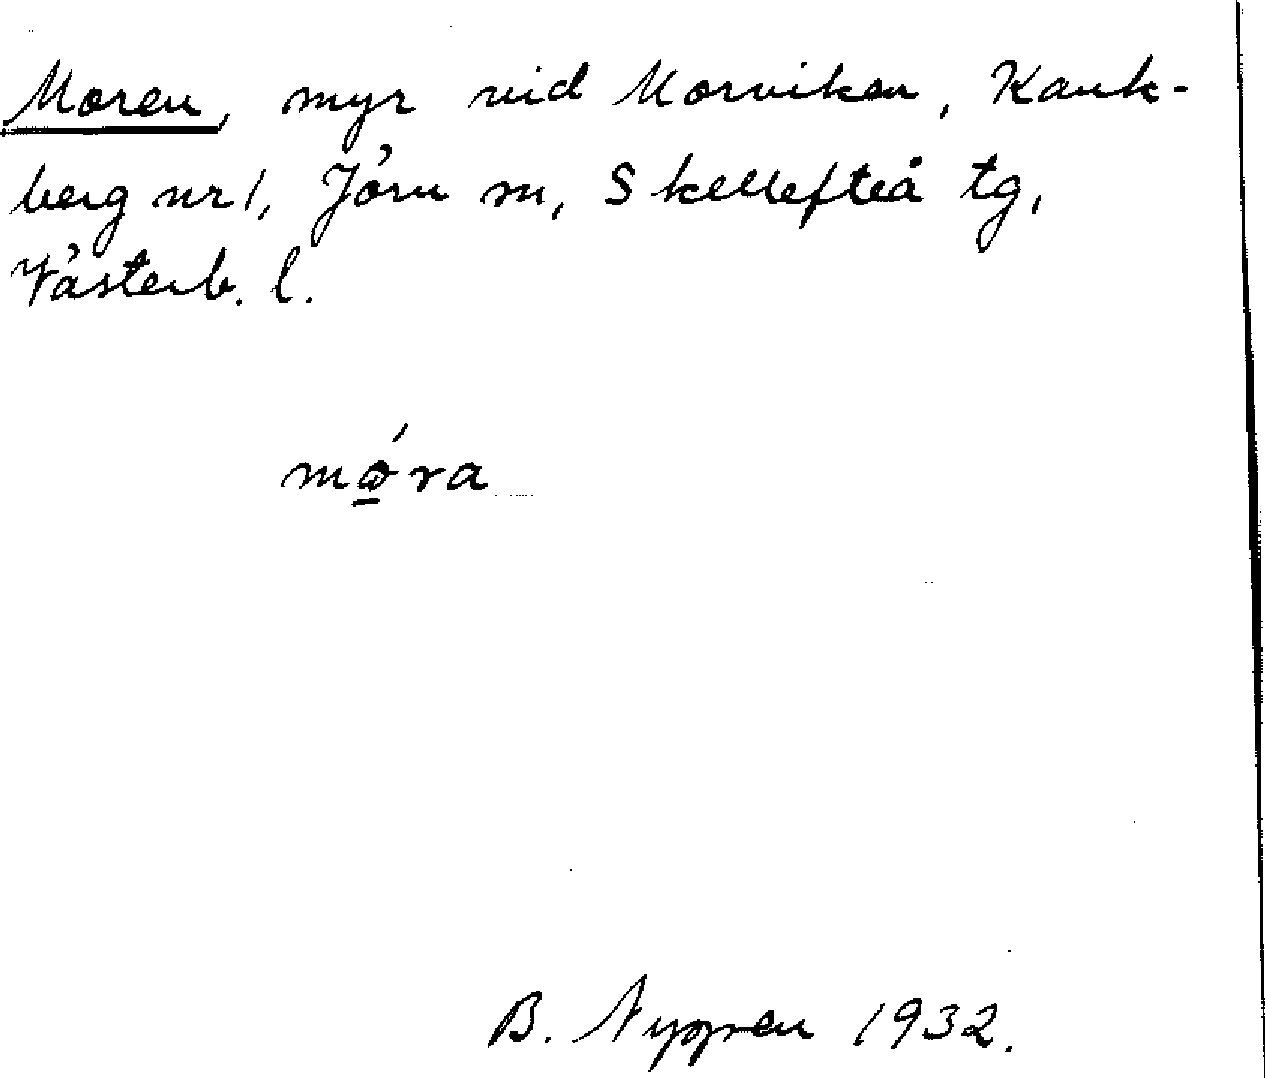 Moren, myr vid Morviken, Kank-
berg nr 1, Jörn sn, Skellefteå tg,
Västerb. l.
mǫ́ra
B. Nyppen 1932.